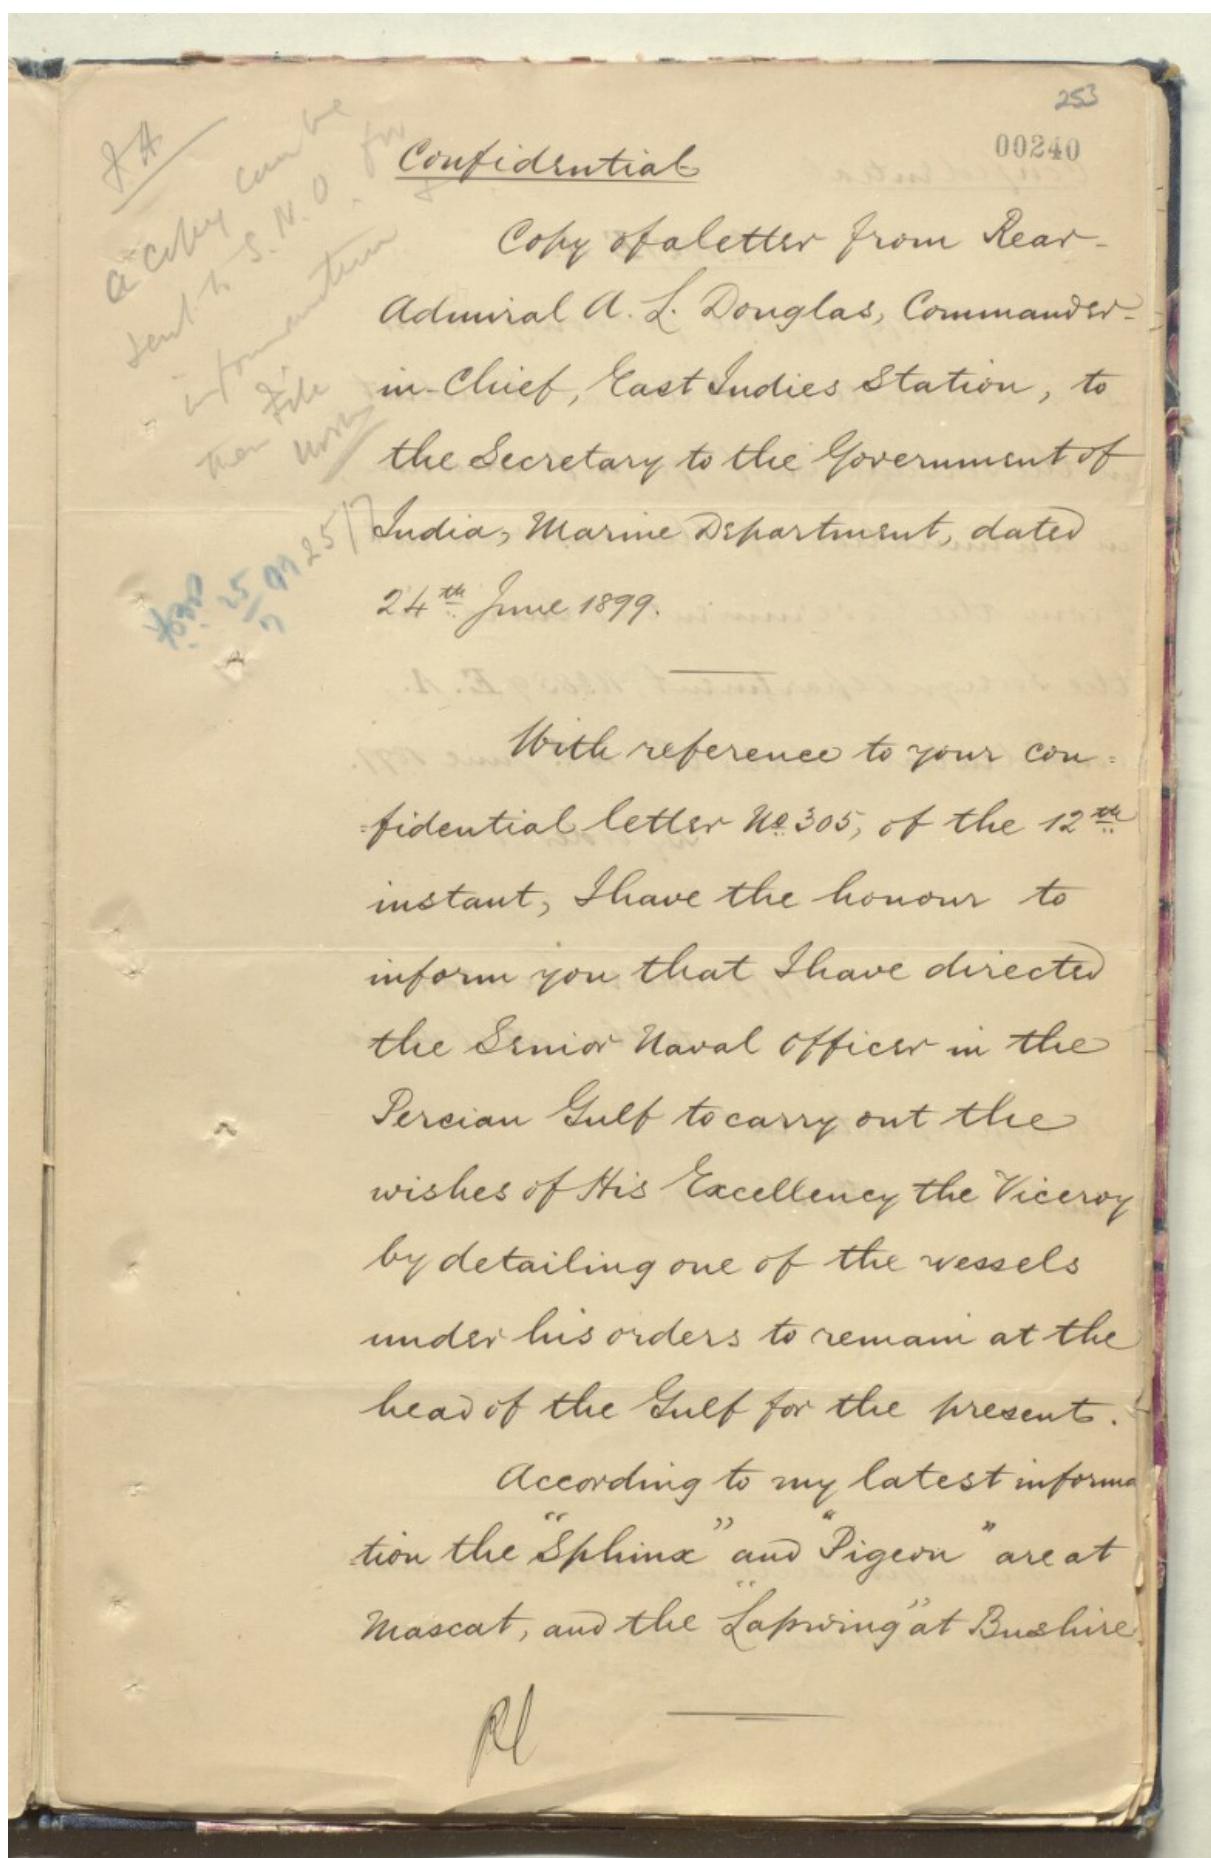 253
00240
Confidential
Copy of a letter from Rear-
Admiral A. L. Douglas, Commander-
in-Chief, East Indies Station, to
the Secretary to the Government of
India, Marine Department, dated
24th June 1899.
With reference to your con=
=fidential letter No 305, of the 12th
instant, I have the honour to
inform you that I have directed
the Senior Naval Officer in the
Persian Gulf to carry out the
wishes of His Excellency the Viceroy
by detailing one of the vessels
under his orders to remain at the
head of the Gulf for the present.
According to my latest informa
=tion the "Sphinx" and "Pigeon" are at
Mascat, and the "Lapwing" at Bushire.
a copy can be
sent to S. N. O. for
information
then File
25/7
25/7